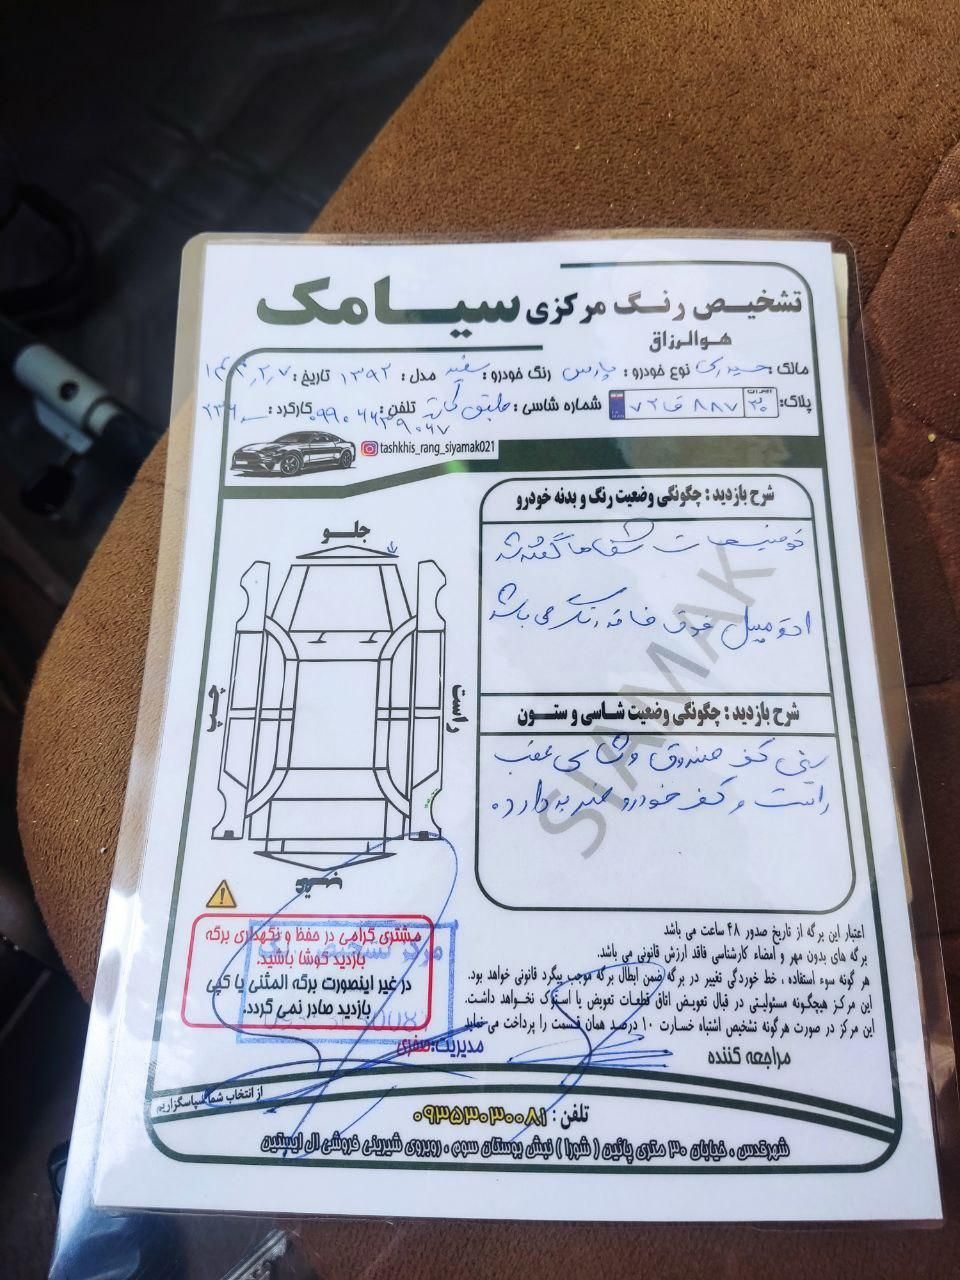 تشخیص رنگ مرکزی سیامک
هوالرزاق
مالک: حیدری نوع خودرو: پارس رنگ خودرو: سفید مدل: ۱۳۹۲ تاریخ: ۱۴۰۳,۲,۷
پلاک: ایران ۲۰ ۸۸۷ ق ۷۲ شماره شاسی: طبق کارت تلفن: ۰۹۹۰۶۶۳۹۰۶۷ کارکرد:
tashkhis_rang_siyamak021
شرح بازدید: چگونگی وضعیت رنگ و بدنه خودرو
توضیحات شفاها گفته شد
اتومبیل فوق فاقد رنگ می باشد
شرح بازدید: چگونگی وضعیت شاسی و ستون
سینی کف صندوق و شاسی عقب
راست و کف خودرو ضربه دارد.
جلو
چپ
راست
عقب
SIAMAK
مشتری گرامی در حفظ و نگهداری برگه
بازدید کوشا باشید.
در غیر اینصورت برگه المثنی یا کپی
بازدید صادر نمی گردد.
مدیریت: صفری
اعتبار این برگه از تاریخ صدور ۴۸ ساعت می باشد
برگه های بدون مهر و امضاء کارشناسی فاقد ارزش قانونی می باشد.
هر گونه سوء استفاده ، خط خوردگی تغییر در برگه ضمن ابطال برگه موجب پیگرد قانونی خواهد بود.
این مرکز هیچگونه مسئولیتی در قبال تعویض اتاق قطعات تعویض یا استوک نخواهد داشت.
این مرکز در صورت هرگونه تشخیص اشتباه خسارت ۱۰ درصد همان قسمت را پرداخت می نماید
مراجعه کننده
از انتخاب شما سپاسگزاریم
تلفن: ۰۹۳۵۳۰۳۰۰۸۱
شهرقدس ، خیابان ۳۰ متری پائین ( شورا ) نبش بوستان سوم ، روبروی شیرینی فروشی ال ایپتین